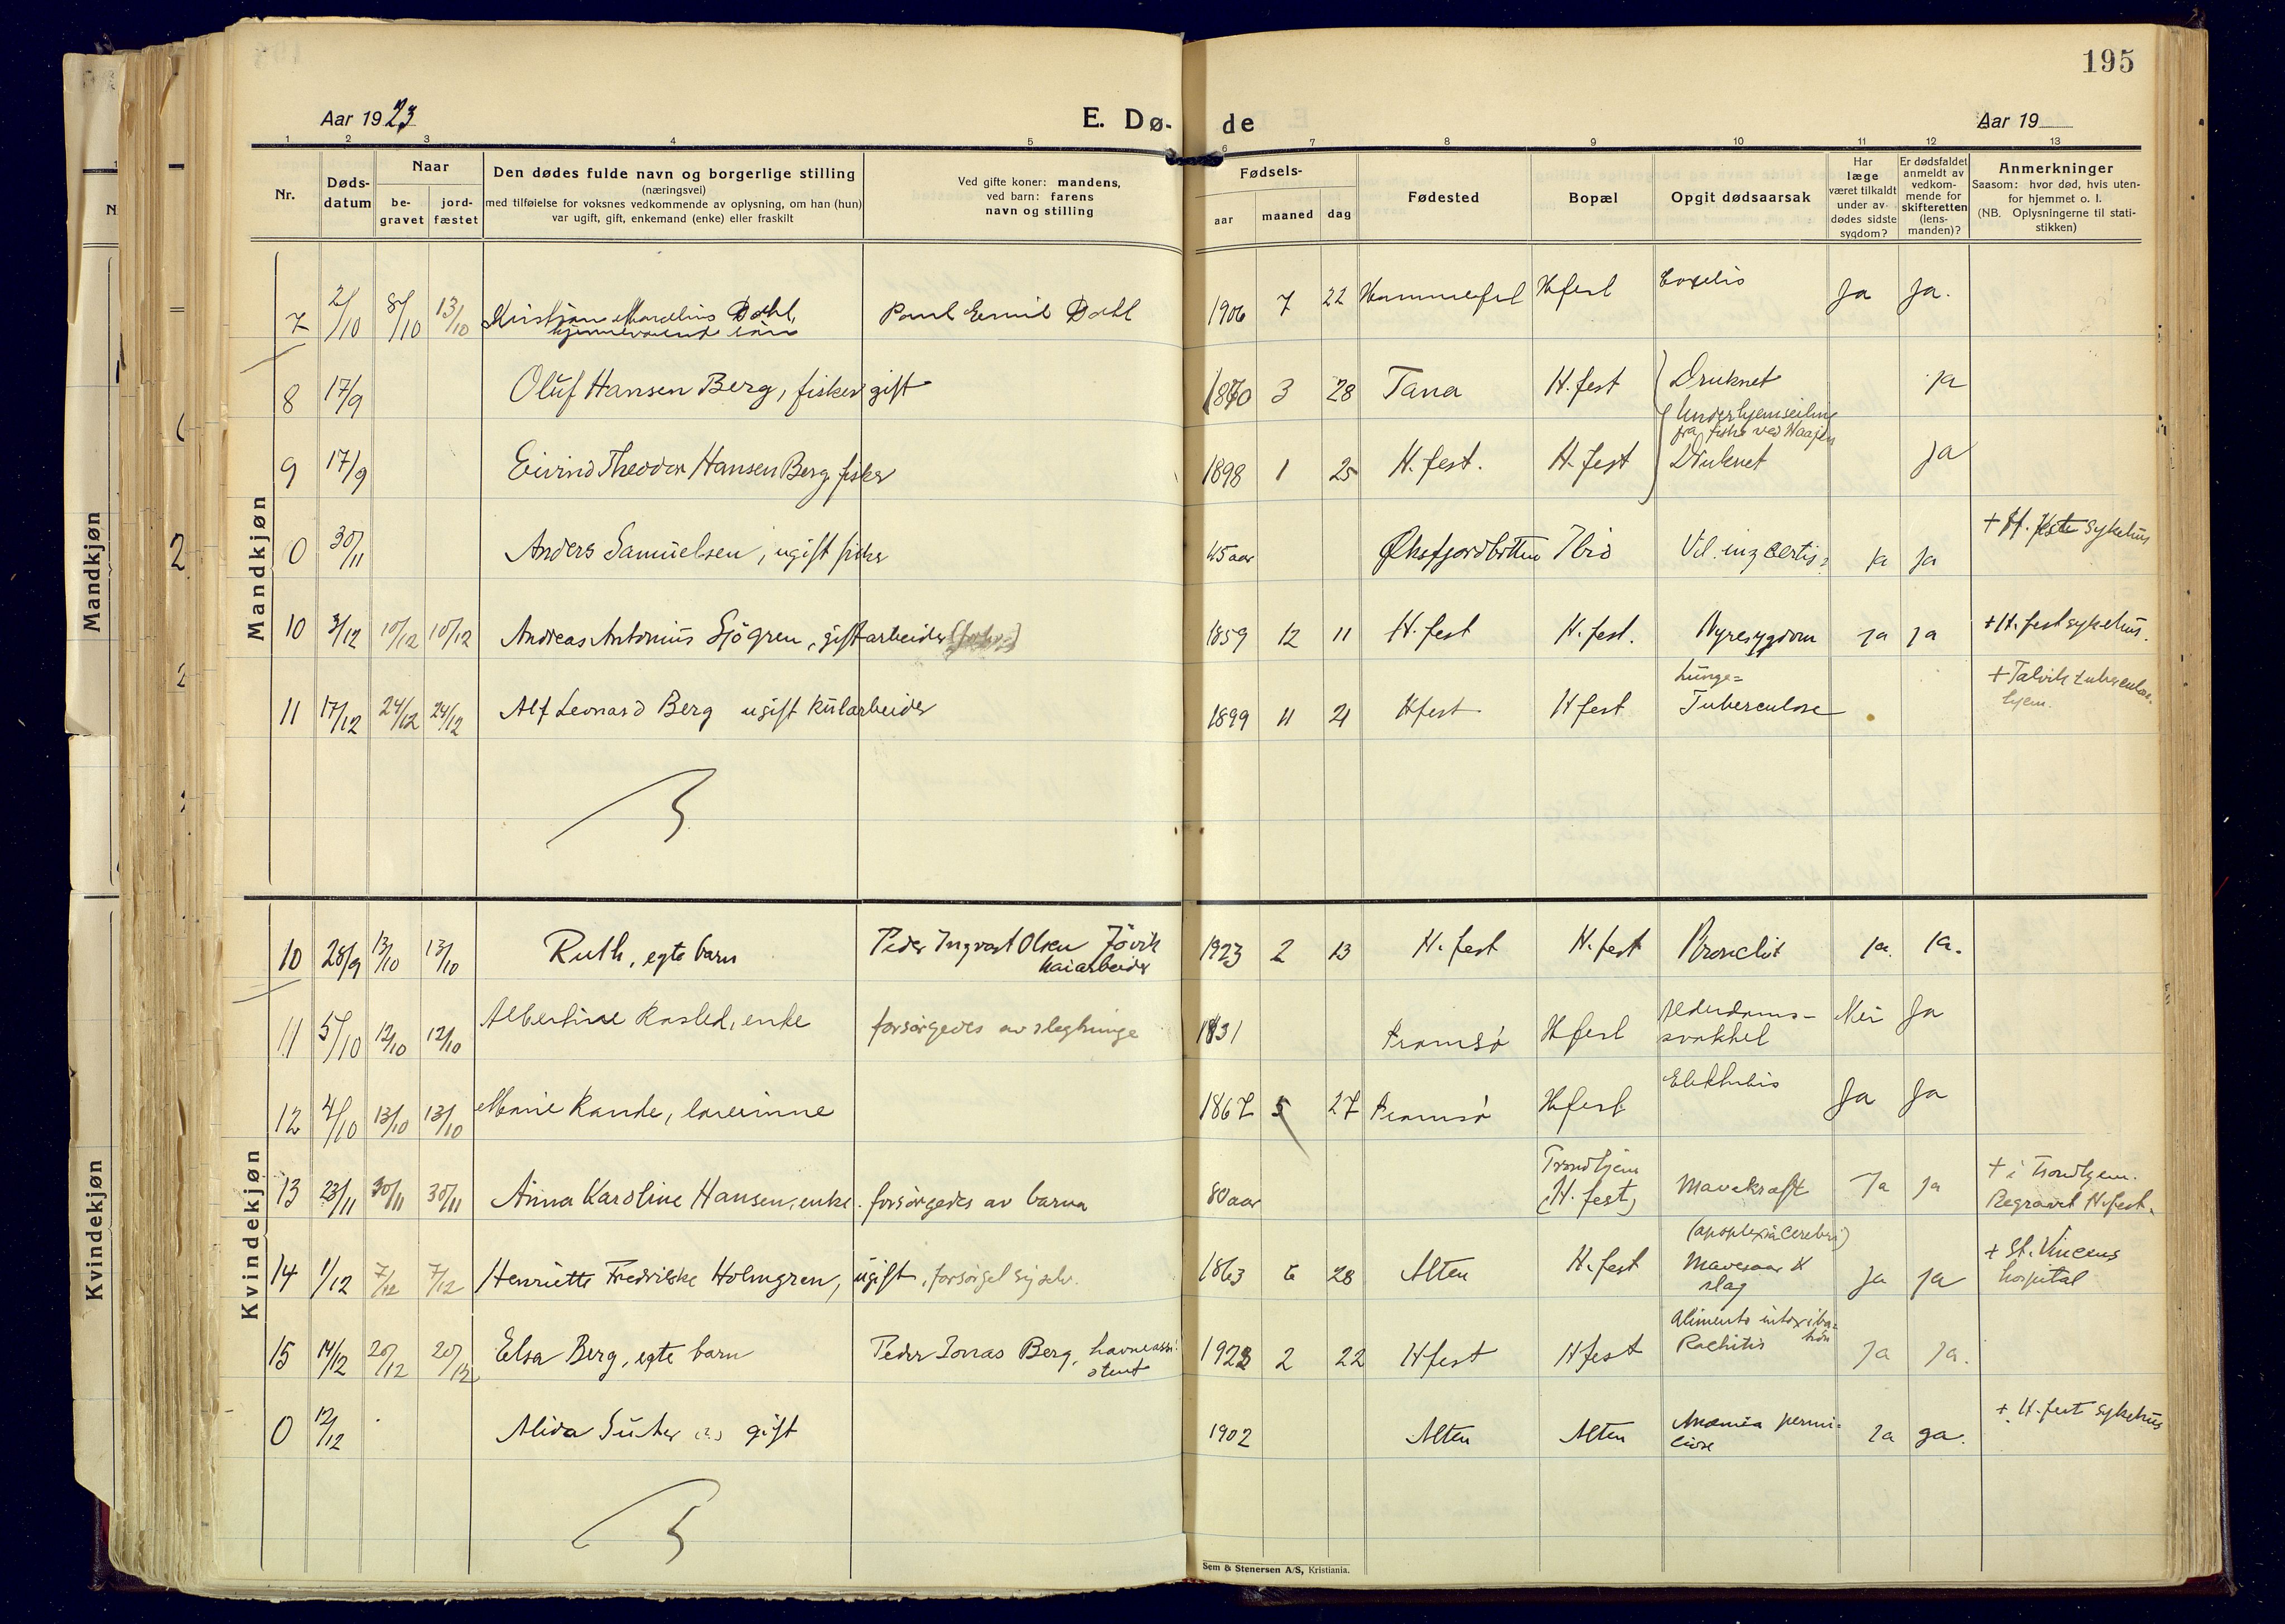 195
Aar 1923
E. Dø-
de
Aar 19
1 2 3 4 5 6 7 8 9 10 11 12 13
Nr.
Døds-
datum
Naar
be-
gravet
jord-
fæstet
Den dødes fulde navn og borgerlige stilling
(næringsvei)
med tilføielse for voksnes vedkommende av oplysning, om han (hun)
var ugift, gift, enkemand (enke) eller fraskilt
Ved gifte koner: mandens,
ved barn: farens
navn og stilling
Fødsels-
aar
maaned
dag
Fødested
Bopæl
Opgit dødsaarsak
Har
læge
været tilkaldt
under av-
dødes sidste
sygdom?
Er dødsfaldet
anmeldt av
vedkom-
mende for
skifteretten
(lens-
manden)?
Anmerkninger
Saasom: hvor død, hvis uten-
for hjemmet o. l.
(NB. Oplysningerne til stati-
stikken)
Mandkjøn
7 2/10 8/10 13/10 Kristian Marelius Dahl, Paul Emil Dahl 1906 7 22 Hammerfest Hfest Ja Ja.
hjemmeværende søn
8 17/9 Oluf Hansen Berg, fisker gift 1870 3 28 Tana H. fest Druknet ja
Under hjemseiling
fra fiske ved
9 17/9 Eivind Theodor Hansen Berg, fisker 1898 1 25 H. fest. H. fest Druknet ja
0 30/11 Anders Samuelsen, ugift fisker 45 aar Øksfjordbotten Ibid ja ja + H. fest sykehus
10 3/12 10/12 10/12 Andreas Antonius Sjögren, gift arbeider 1859 12 11 H. fest H. fest. Nyresygdom ja ja + H. fest sykehus.
11 17/12 24/12 24/12 Alf Leonard Berg ugift kularbeider 1899 11 21 Hfest Hfest Lunge=
Tuberculose + Talvik tuberculose-
hjem.
Kvindekjøn
10 28/9 13/10 13/10 Ruth, egte barn Peder Ingvart Olsen Jøvik
kaiarbeider 1923 2 13 H. fest H. fest Bronchit ja. ja.
11 5/10 12/10 12/10 Albertine Kasled, enke forsørgedes av slegtninge 1831 Tromsø Hfest Alderdoms-
svakhet Nei Ja
12 4/10 13/10 13/10 Marie Kande, lærerinne 1867 5 27 Tromsø Hfest Ja Ja
13 23/11 30/11 30/11 Anna Karoline Hansen, enke. forsørgedes av barna 80 aar Trondhjem
(H. fest) Mavekræft Ja ja + i Trondhjem.
Begravet H.fest.
14 1/12 7/12 7/12 Henriette Fredrikke Holmgren, ugift, forsørget sig selv. 1863 6 28 Alten H. fest (apoplexia cerebri)
Mavesaar &
slag ja ja + St. Vincens
hospital
15 14/12 20/12 20/12 Elsa Berg, egte barn Peder Jonas Berg, havneassi-
stent 1923 2 22 Hfest Hfest Rachitis Ja Ja.
0 12/12 Alida gift 1902 Alten Alten Anæmia perni-
ciøse Ja ja. + H. fest sykehus
Sem & Stenersen A/S, Kristiania.
Mandkjøn
Kvindekjøn